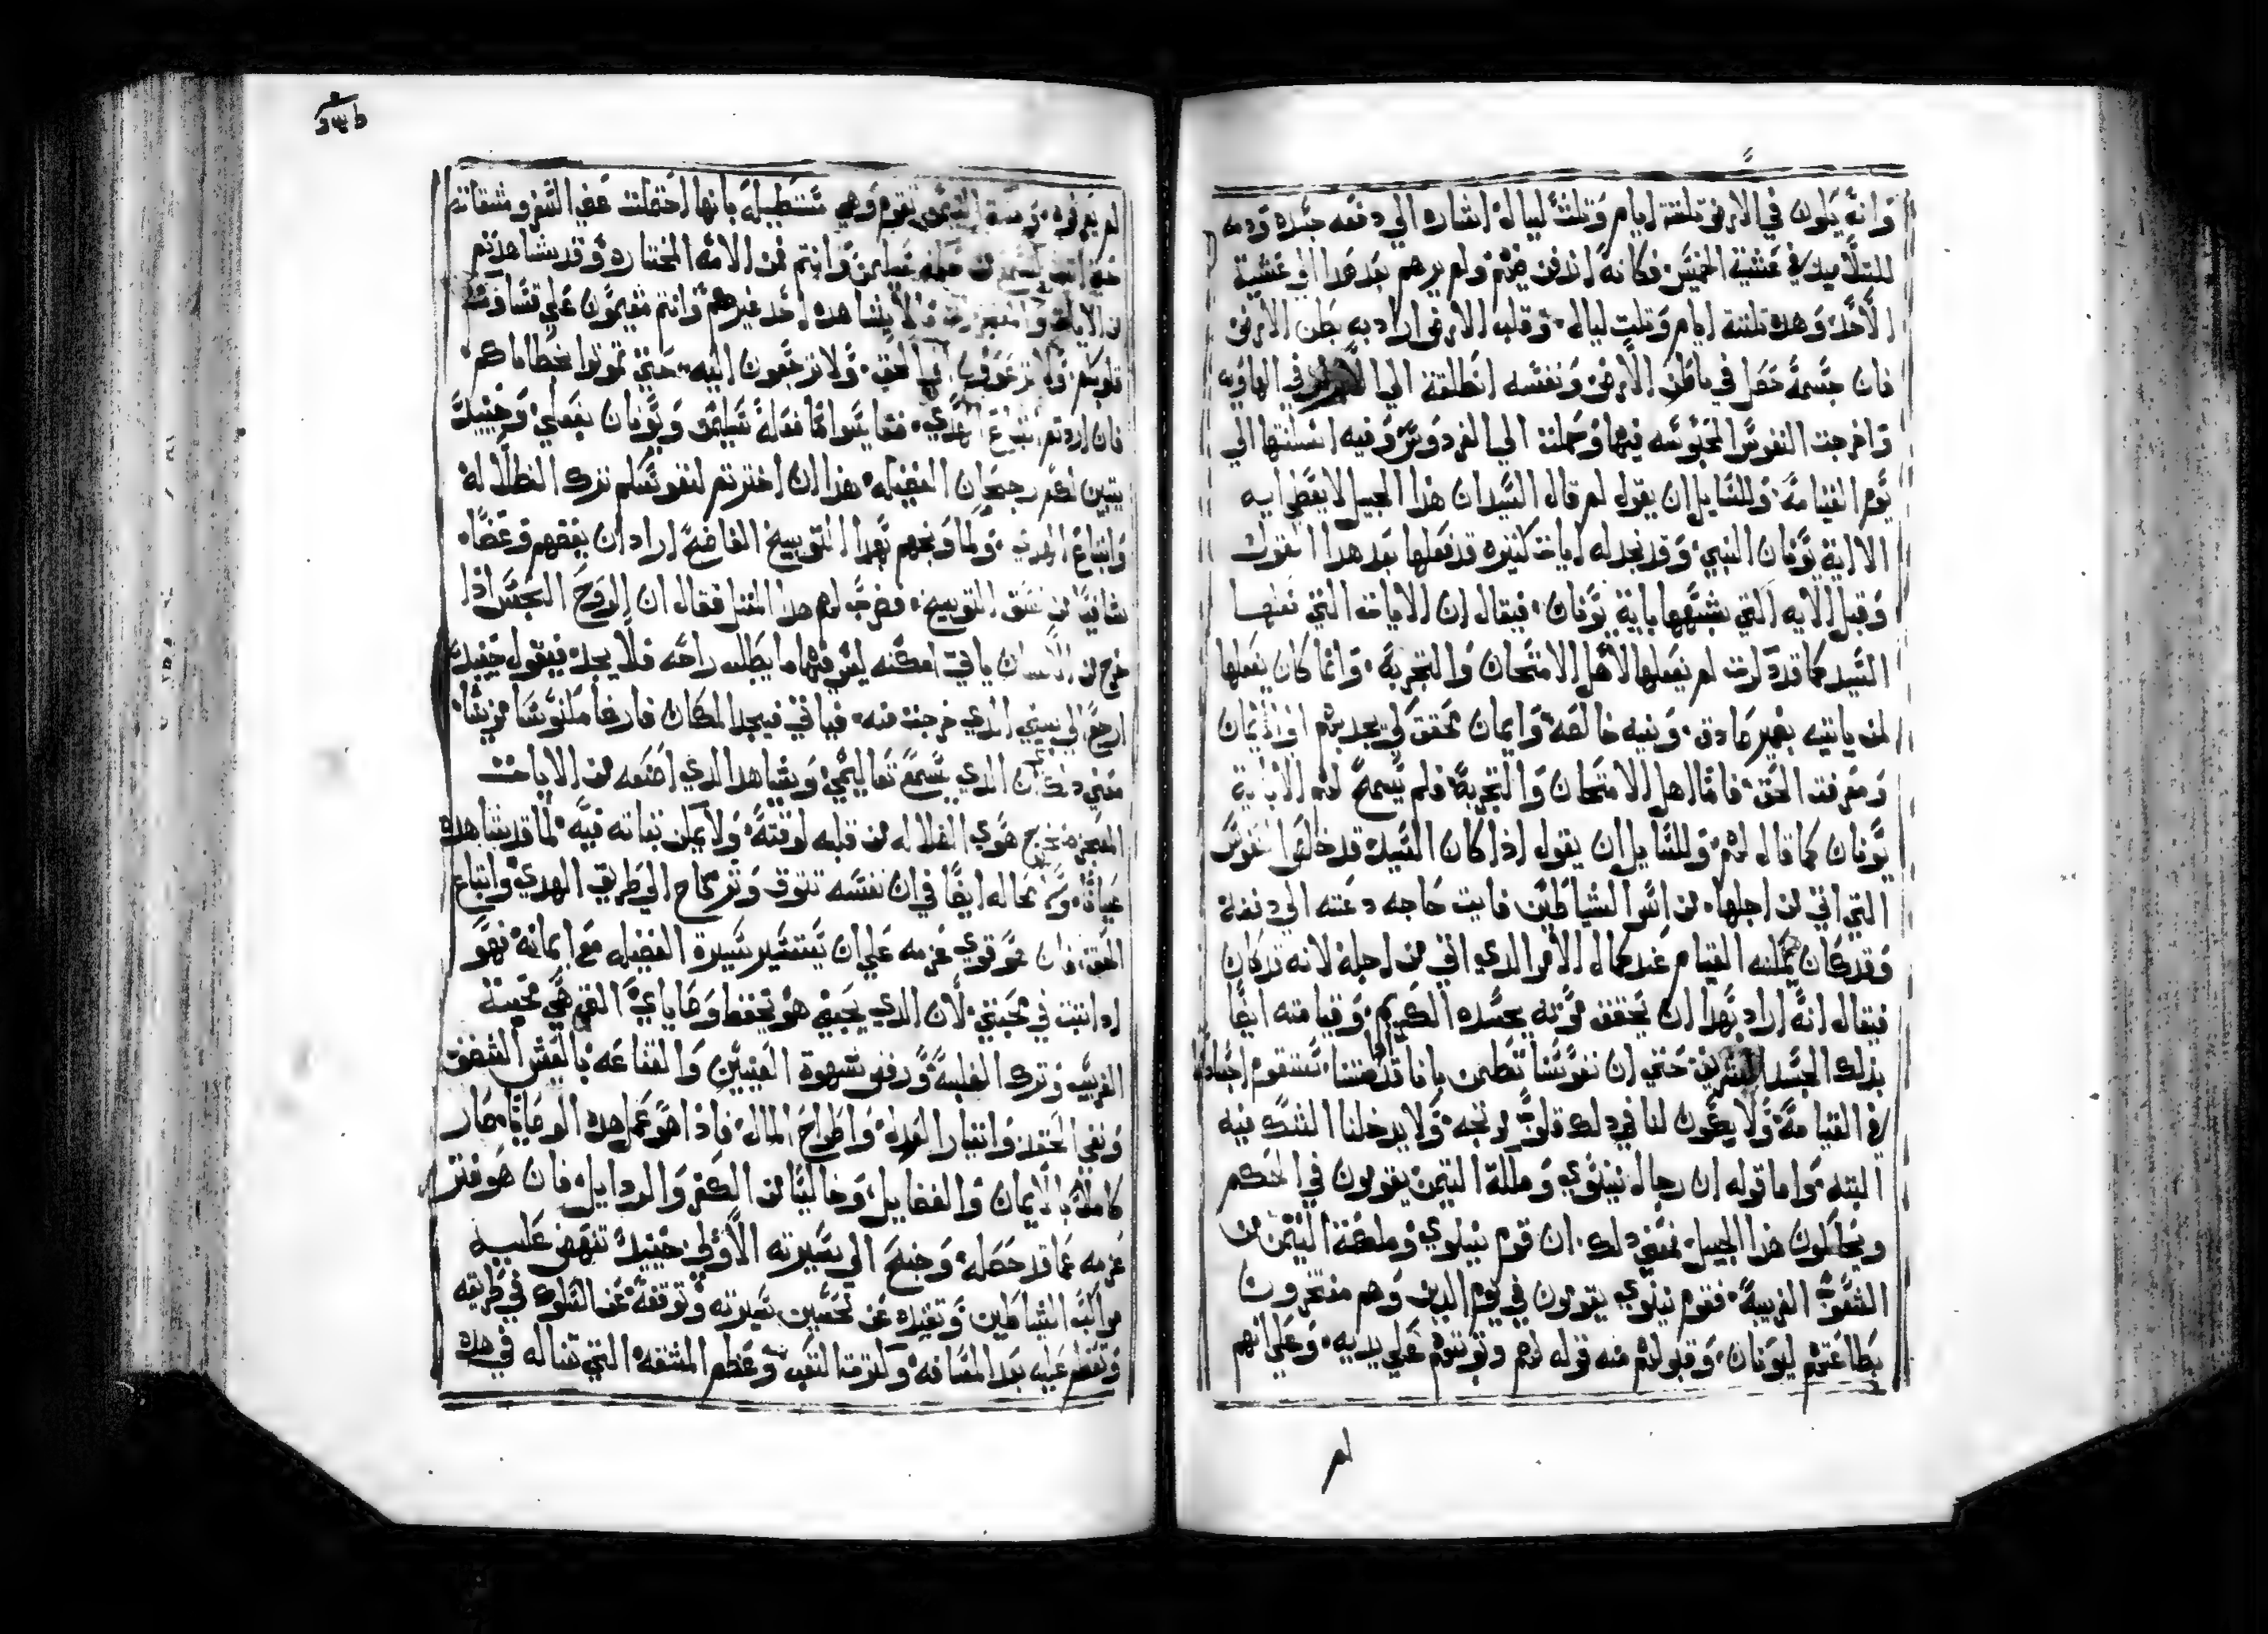 وانه يكون في الارض تلتة ايام وتلت ليال اشاره الي دفعه جسده ودمه
للتلاميد في عشية الخميس فكانه اندفن فيهم ولم يرهم بعد هدا الي عشية
الاحد وهده تلتة ايام وتلت ليال وقلب الارض اراد به بطن الارض
فان جسمه حصل في باطن الارض ونفسه انطلقة الي في الهاويه
واخرجت النفوس المحبوسه فيها وحملت الي الفردوس وفيه اسكنتها الي
يوم القيامه وللسايل ان يقول لم قال السيد ان هدا الجيل لا يعطي ايه
الا اية يونان النبي وقد نجد له ايات كتيره قد فعلها بعد هدا القول
وقبل الايه التي شبهها باية يونان فيقال ان الايات التي فعلها
السيد كما قد دكرت لم يفعلها لاهل الامتحان والتجربه وانما كان يفعلها
لمن ياتيه بضمير صادق ونيه خالصه وايمان محقق لي يجدبهم الي الايمان
ومعرفت الحق فاما اهل الامتحان والتجربة فلم يسمح لهم الا باية
يونان كما قال لهم وللسايل ان يقول ادا كان السيد قد خالص النفوس
التي اتي من اجلها من اسر الشياطين فايت حاجه دعته الي دفنه
وقد كان يمكنه القيام عند كمال الامر الدي اتي من اجله لانه قد كان
فيقال انه اراد بهدا ان يحقق موته بجسده الكريم وقيامته ايضا
بدلك الجسد حتي ان نفوسنا تطمن بانا قد متنا ستقوم اجسادنا
في القيامه ولا يكون لنا في دلك قلق ولا يدخلنا الشك فيه
البته واما قوله ان رجال نينوي وملكة التيمن يقومون في الحكم
ويحاكمون هدا الجيل فمعني دلك ان قوم نينوي وملكة التيمن من
الشعوب الغريبة فقوم نينوي يقومون في يوم الدين وهم مفتخرون
بطاعتهم ليونان وقبولهم منه قوله لهم وتوبتهم علي يديه وعلي انهم
لم
لم يعرفوه وملكة التيمن تقوم وهي مستطيله بانها احتملت عنا السفر ومشقاته
وانتم من الامه المختاره وقد شاهدتم
من الايات والمعجزات ما لا يشاهده احد غيرهم وانتم مقيمون علي قساوت
قلوبكم ولا الي الحق ولا ترجعون اليه حتي تموتوا بخطاياكم
فان اردتم اتباع الهدي فقايسوا ما فعله سليمن ويونان بفعلي وحينيد
يتبين لكم رجحان الفضيله هدا ان اخترتم لنفوسكم ترك الظلاله
واتباع الهدي ولما وبخهم بهدا التوبيخ الفاضح اراد ان يعضهم وعضا
تانيا من نسق التوبيخ فضرب لهم هدا المتل فقال ان الروح النجس ادا
خرج من الانسان ياتي امكنه ليس فيها ما يطلب راحه فلا يجد فيقول حينيد
ارجع الي بيتي الدي خرجت منه فياتي فيجد المكان فارغا مكنوسا مزينا
معني دلك ان الدي يسمع تعاليمي ويشاهد الدي اصنعه من الايات
المعجزه يخرج هوي الظلاله من قلبه لوقته ولا يمكن تباته فيه لما قد شاهده
عيانا ايضا في ان نفسه تتوق وترتاح الي طريق الهدي واتباع
الحق فان هو قوي عزمه علي ان يستسير بسيرة الفضيله مع ايمانه فهو
اد اتبت في محبتي لان الدي يحبني هو يحفظ وصاياي التي هي محبة
القريب وترك الغلبة ورفض شهوة العينين والقناعه بالعيش الشضف
ونفي الحقد وانتيار العده واطراح المال فادا هو عمل هده الوصايا صار
كاملا بالايمان والفضايل وخاليا من الكفر والردايل فان هو فتر
عزمه عما قد حصله وجنح الي سيرته الاولي حينيد تنهض عليه
مراكب الشياطين وتعيده عن تحسين سيرته وتوقفه عن السلوك في طريقه
وتعظم عليه بعد المسافه وكترت التعب وعظم المشقه التي تناله في هده